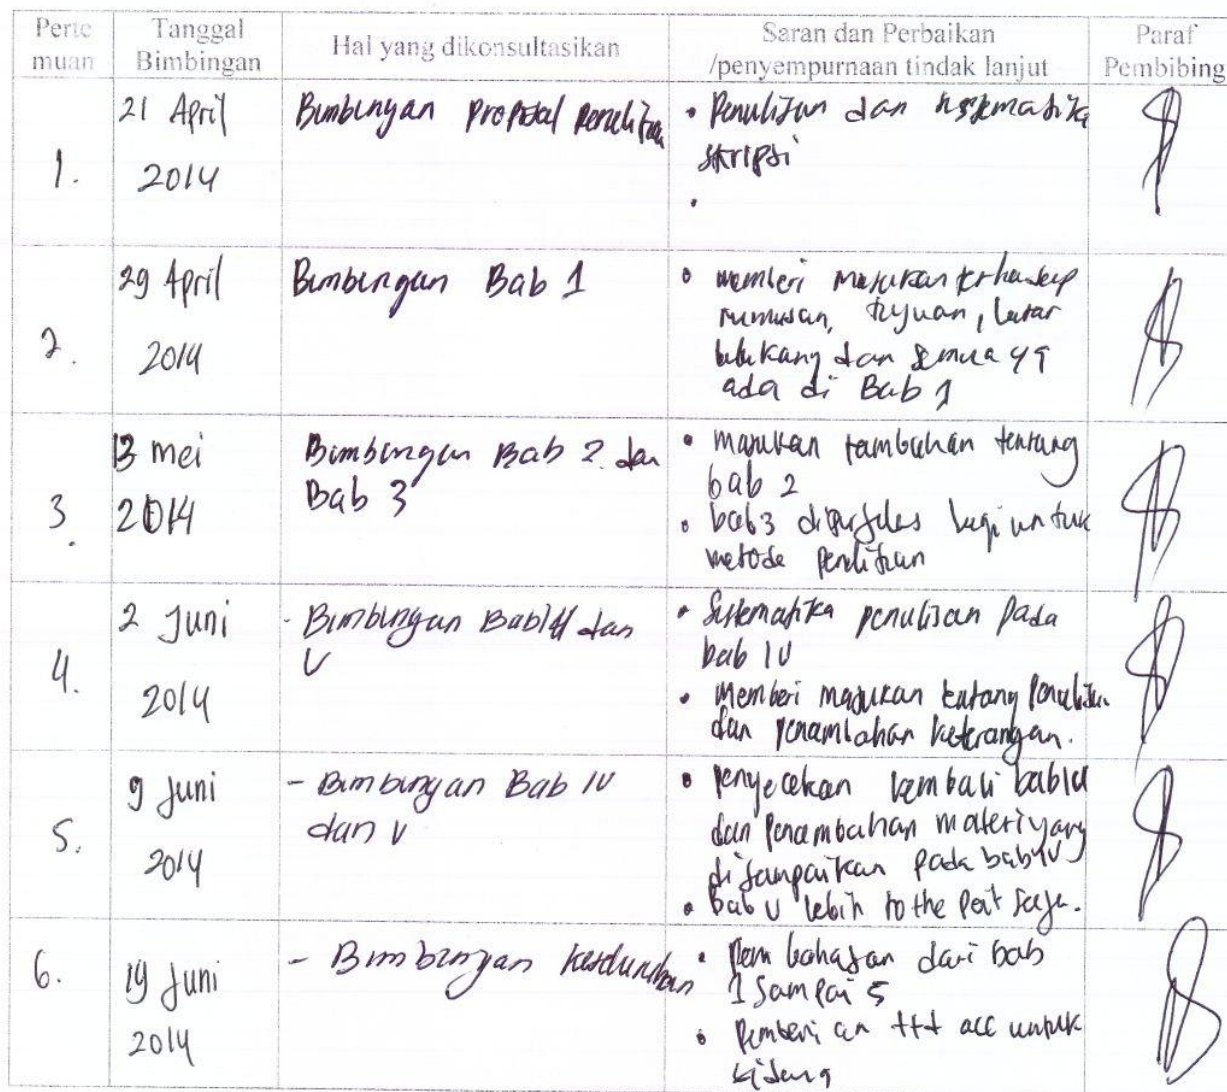 Perte muan
Tanggal Bimbingan
Hal yang dikonsultasikan
Saran dan Perbaikan /penyempurnaan tindak lanjut
Paraf Pembibing
1.
21 April
2014
Bimbingan Proposal penelitian
• Penulisan dan sistematika
skripsi
•
2.
29 April
2014
Bimbingan Bab 1
• memberi masukan terhadap
rumusan, tujuan, latar
belakang dan semua yg
ada di Bab 1
3.
13 mei
2014
Bimbingan Bab 2 dan
Bab 3
• masukan tambahan tentang
bab 2
• bab 3 diperjelas lagi untuk
metode penelitian
4.
2 Juni
2014
- Bimbingan Bab IV dan
V
• Sistematika penulisan pada
bab IV
• memberi masukan tentang penulisan
dan penambahan keterangan.
5.
9 Juni
2014
- Bimbingan Bab IV
dan V
• penyecekan kembali bab IV
dan penambahan materi yang
disampaikan pada bab IV
• Bab V lebih to the poit saja.
6.
19 Juni
2014
- Bimbingan keseluruhan
• Pembahasan dari bab
1 sampai 5
• Pemberian ttd acc untuk
sidang